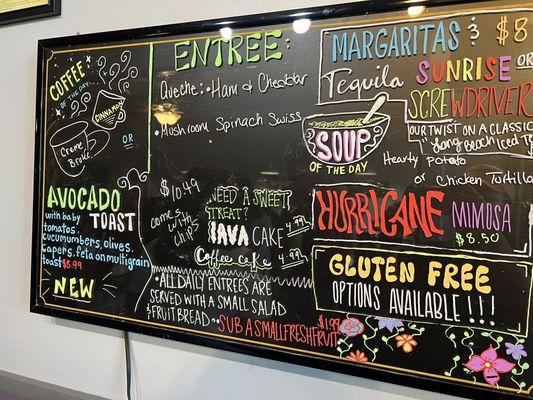 COFFEE
OF THE DAY
CINNAMON
OR
Creme
Brulee
AVOCADO
TOAST
with baby
tomatoes,
cucumumbers, olives,
capers, feta on multigrain
toast $8.99
NEW
ENTREE:
Queche: • Ham & Cheddar
• Mushroom Spinach Swiss
$10.49
comes
with
chips
NEED A SWEET
TREAT?
JAVA CAKE 4.99
Coffee cake 4.99
• ALL DAILY ENTREES ARE
SERVED WITH A SMALL SALAD
& FRUIT BREAD
• SUB A SMALL FRESH FRUIT $1.99
MARGARITAS & $8
Tequila SUNRISE OR
SCREWDRIVER
OUR TWIST ON A CLASSIC
"Long Beach Iced T
SOUP
OF THE DAY
Hearty potato
or Chicken Tortilla
HURRICANE
MIMOSA
$8.50
GLUTEN FREE
OPTIONS AVAILABLE!!!